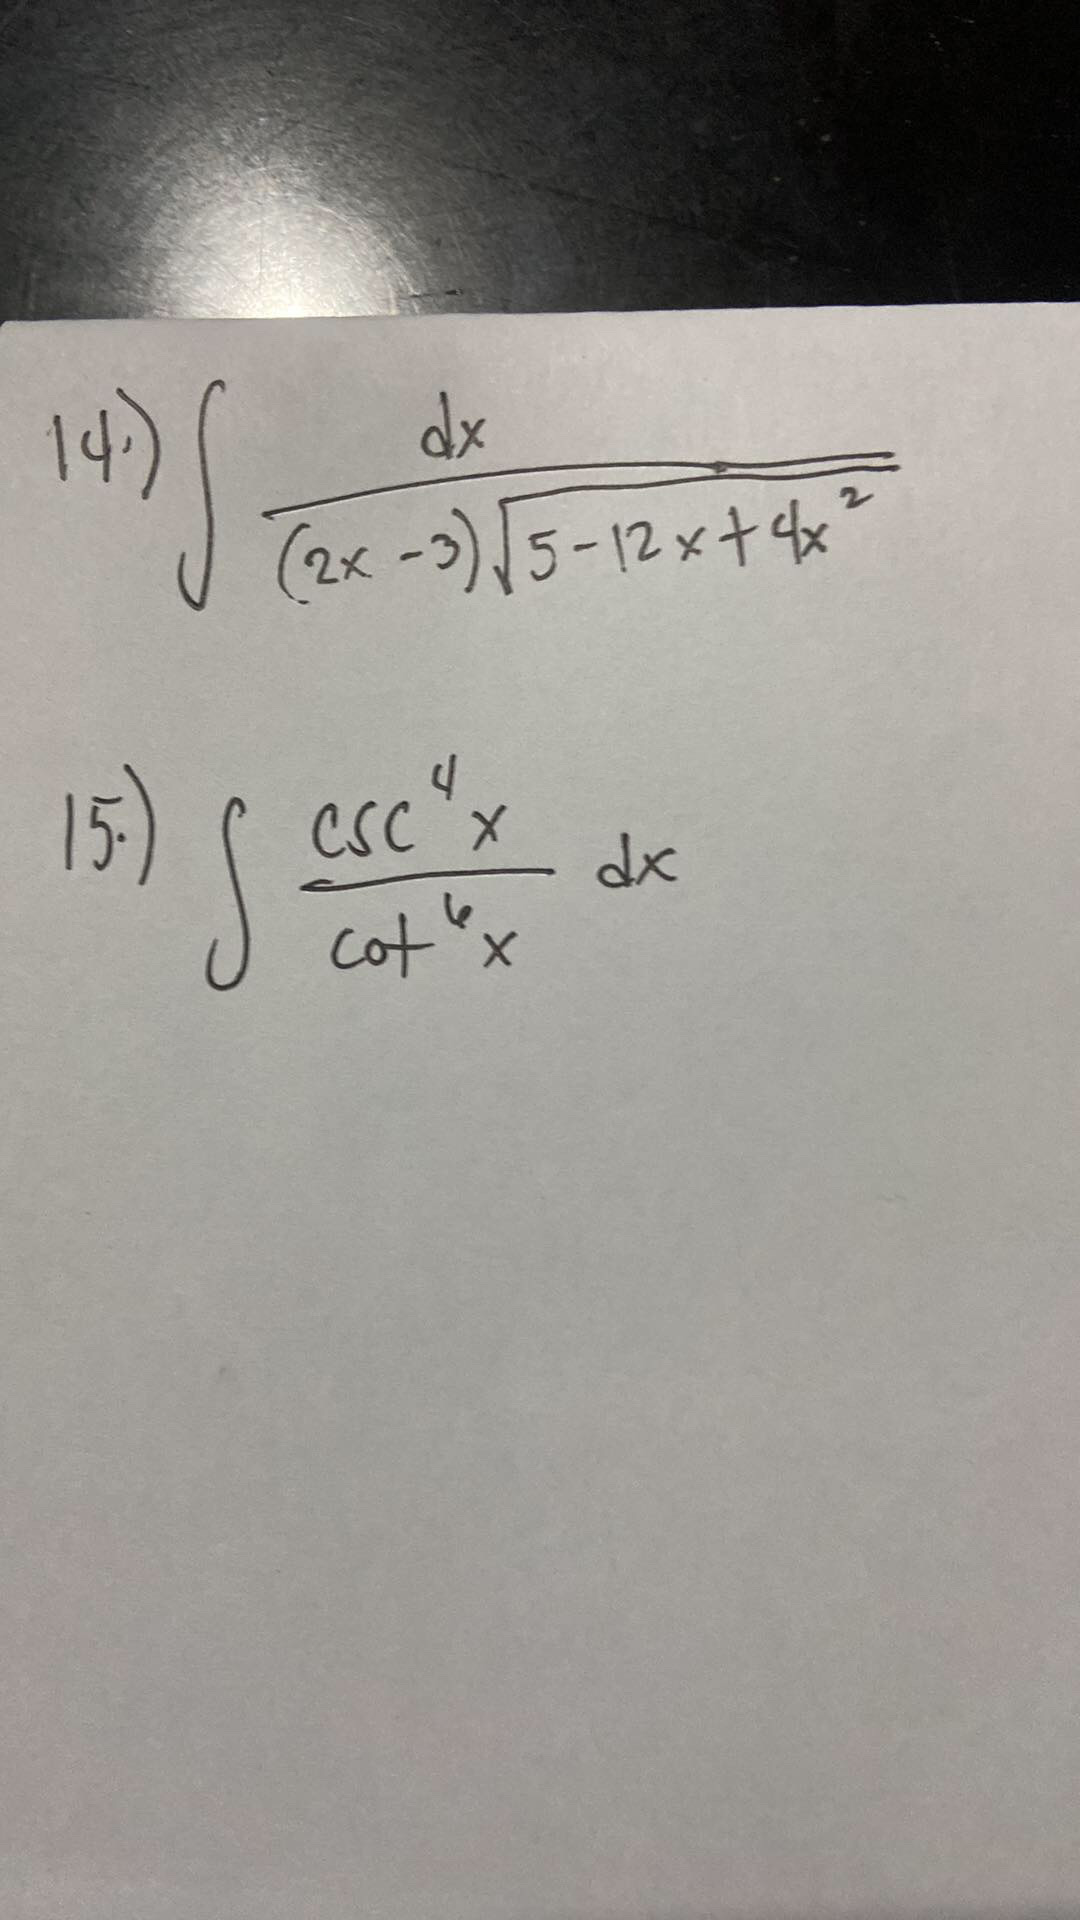 14.) ∫ dx / (2x - 3)√5 - 12x + 4x²
15.) ∫ csc⁴x / cot⁶x dx